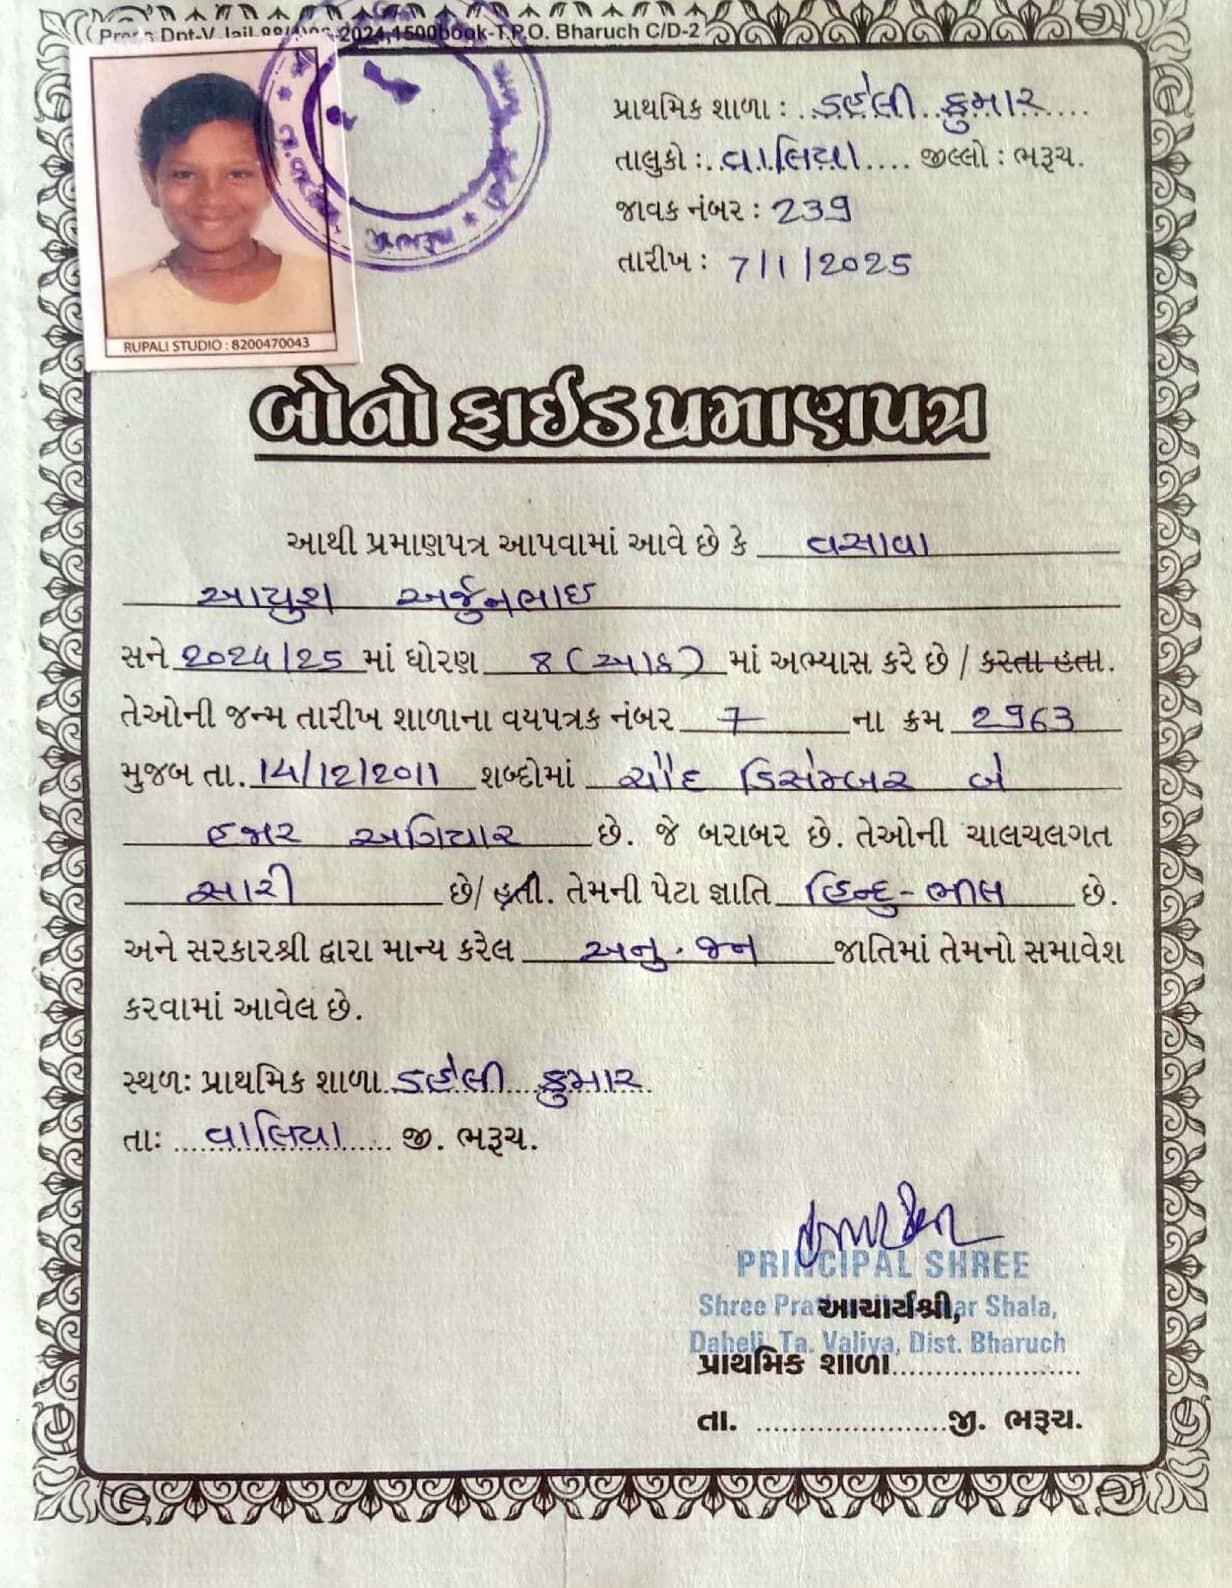 Press Dpt-V.Jail 2024,1500book-T.P.O. Bharuch C/D-2
RUPALI STUDIO : 8200470043
જી.ભરૂચ
પ્રાથમિક શાળા : ડહેલી કુમાર
તાલુકો : વાલિયા જીલ્લો : ભરૂચ.
જાવક નંબર : 239
તારીખ : 7/1/2025
બોનો ફાઈડ પ્રમાણપત્ર
આથી પ્રમાણપત્ર આપવામાં આવે છે કે વસાવા
આયુશ અર્જુનભાઇ
સને 2024/25 માં ધોરણ 8 (આઠ) માં અભ્યાસ કરે છે / કરતા હતા.
તેઓની જન્મ તારીખ શાળાના વયપત્રક નંબર 7 ના ક્રમ 2963
મુજબ તા. 14/12/2011 શબ્દોમાં ચૌદ ડિસેમ્બર બે
હજાર અગિયાર છે. જે બરાબર છે. તેઓની ચાલચલગત
સારી છે/ હતી. તેમની પેટા જ્ઞાતિ હિન્દુ - ભીલ છે.
અને સરકારશ્રી દ્વારા માન્ય કરેલ અનુ. જન જાતિમાં તેમનો સમાવેશ
કરવામાં આવેલ છે.
સ્થળઃ પ્રાથમિક શાળા ડહેલી કુમાર
તાઃ વાલિયા જી. ભરૂચ.
PRINCIPAL SHREE
Shree Shala,
આચાર્યશ્રી,
Daheli, Ta. Valiya, Dist. Bharuch
પ્રાથમિક શાળા
તા. જી. ભરૂચ.